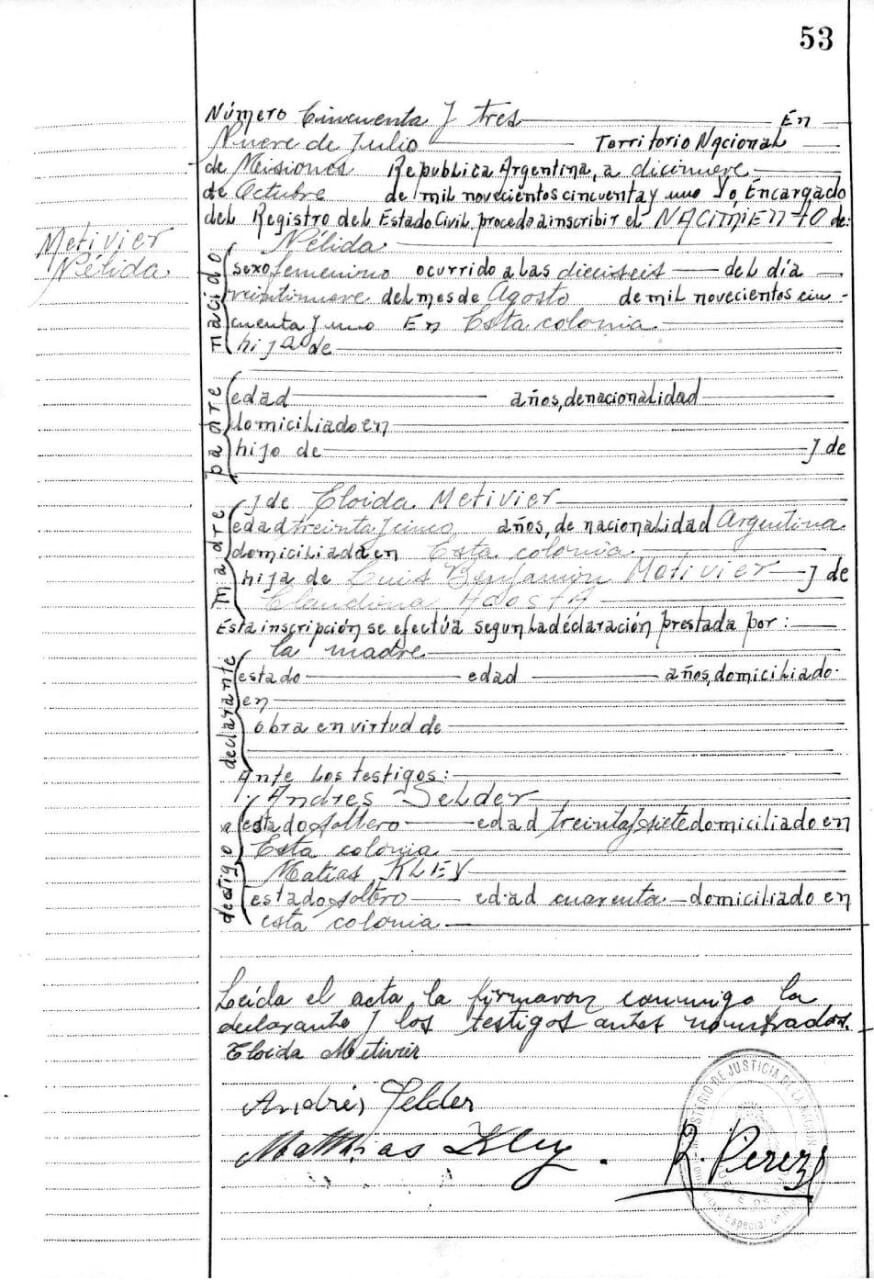 53
Número Cincuenta y tres En
Nueve de Julio Territorio Nacional
de Misiones Republica Argentina, a diecinueve
de Octubre de mil novecientos cincuenta y uno Yo, Encargado
del Registro del Estado Civil, procedo a inscribir el NACIMIENTO de:
Metivier
Nélida
Nélida
nacido
sexo femenino ocurrido a las dieciseis del día
veintinueve del mes de Agosto de mil novecientos cin-
cuenta y uno En Esta colonia
hija de
padre
edad años, de nacionalidad
domiciliado en
hijo de y de
madre
y de Eloida Metivier
edad treinta y cinco años, de nacionalidad Argentina
domiciliada en Esta colonia
hija de Luis Benjamin Metivier y de
Claudina
Esta inscripción se efectúa segun la déclaración prestada por:
la madre
declarante
estado edad años, domiciliado
en
obra en virtud de
Ante los testigos:
testigo
Andres Jelder
estado soltero edad treinta y siete domiciliado en
Esta colonia
Matias KLEY
estado soltero edad cuarenta domiciliado en
esta colonia
Leída el acta la firmaron conmigo la
declarante y los testigos antes nombrados.
Eloida Metivier
Andrés Jelder
Matthias Kley
R. Perez
MINISTERIO DE JUSTICIA DE LA NACION